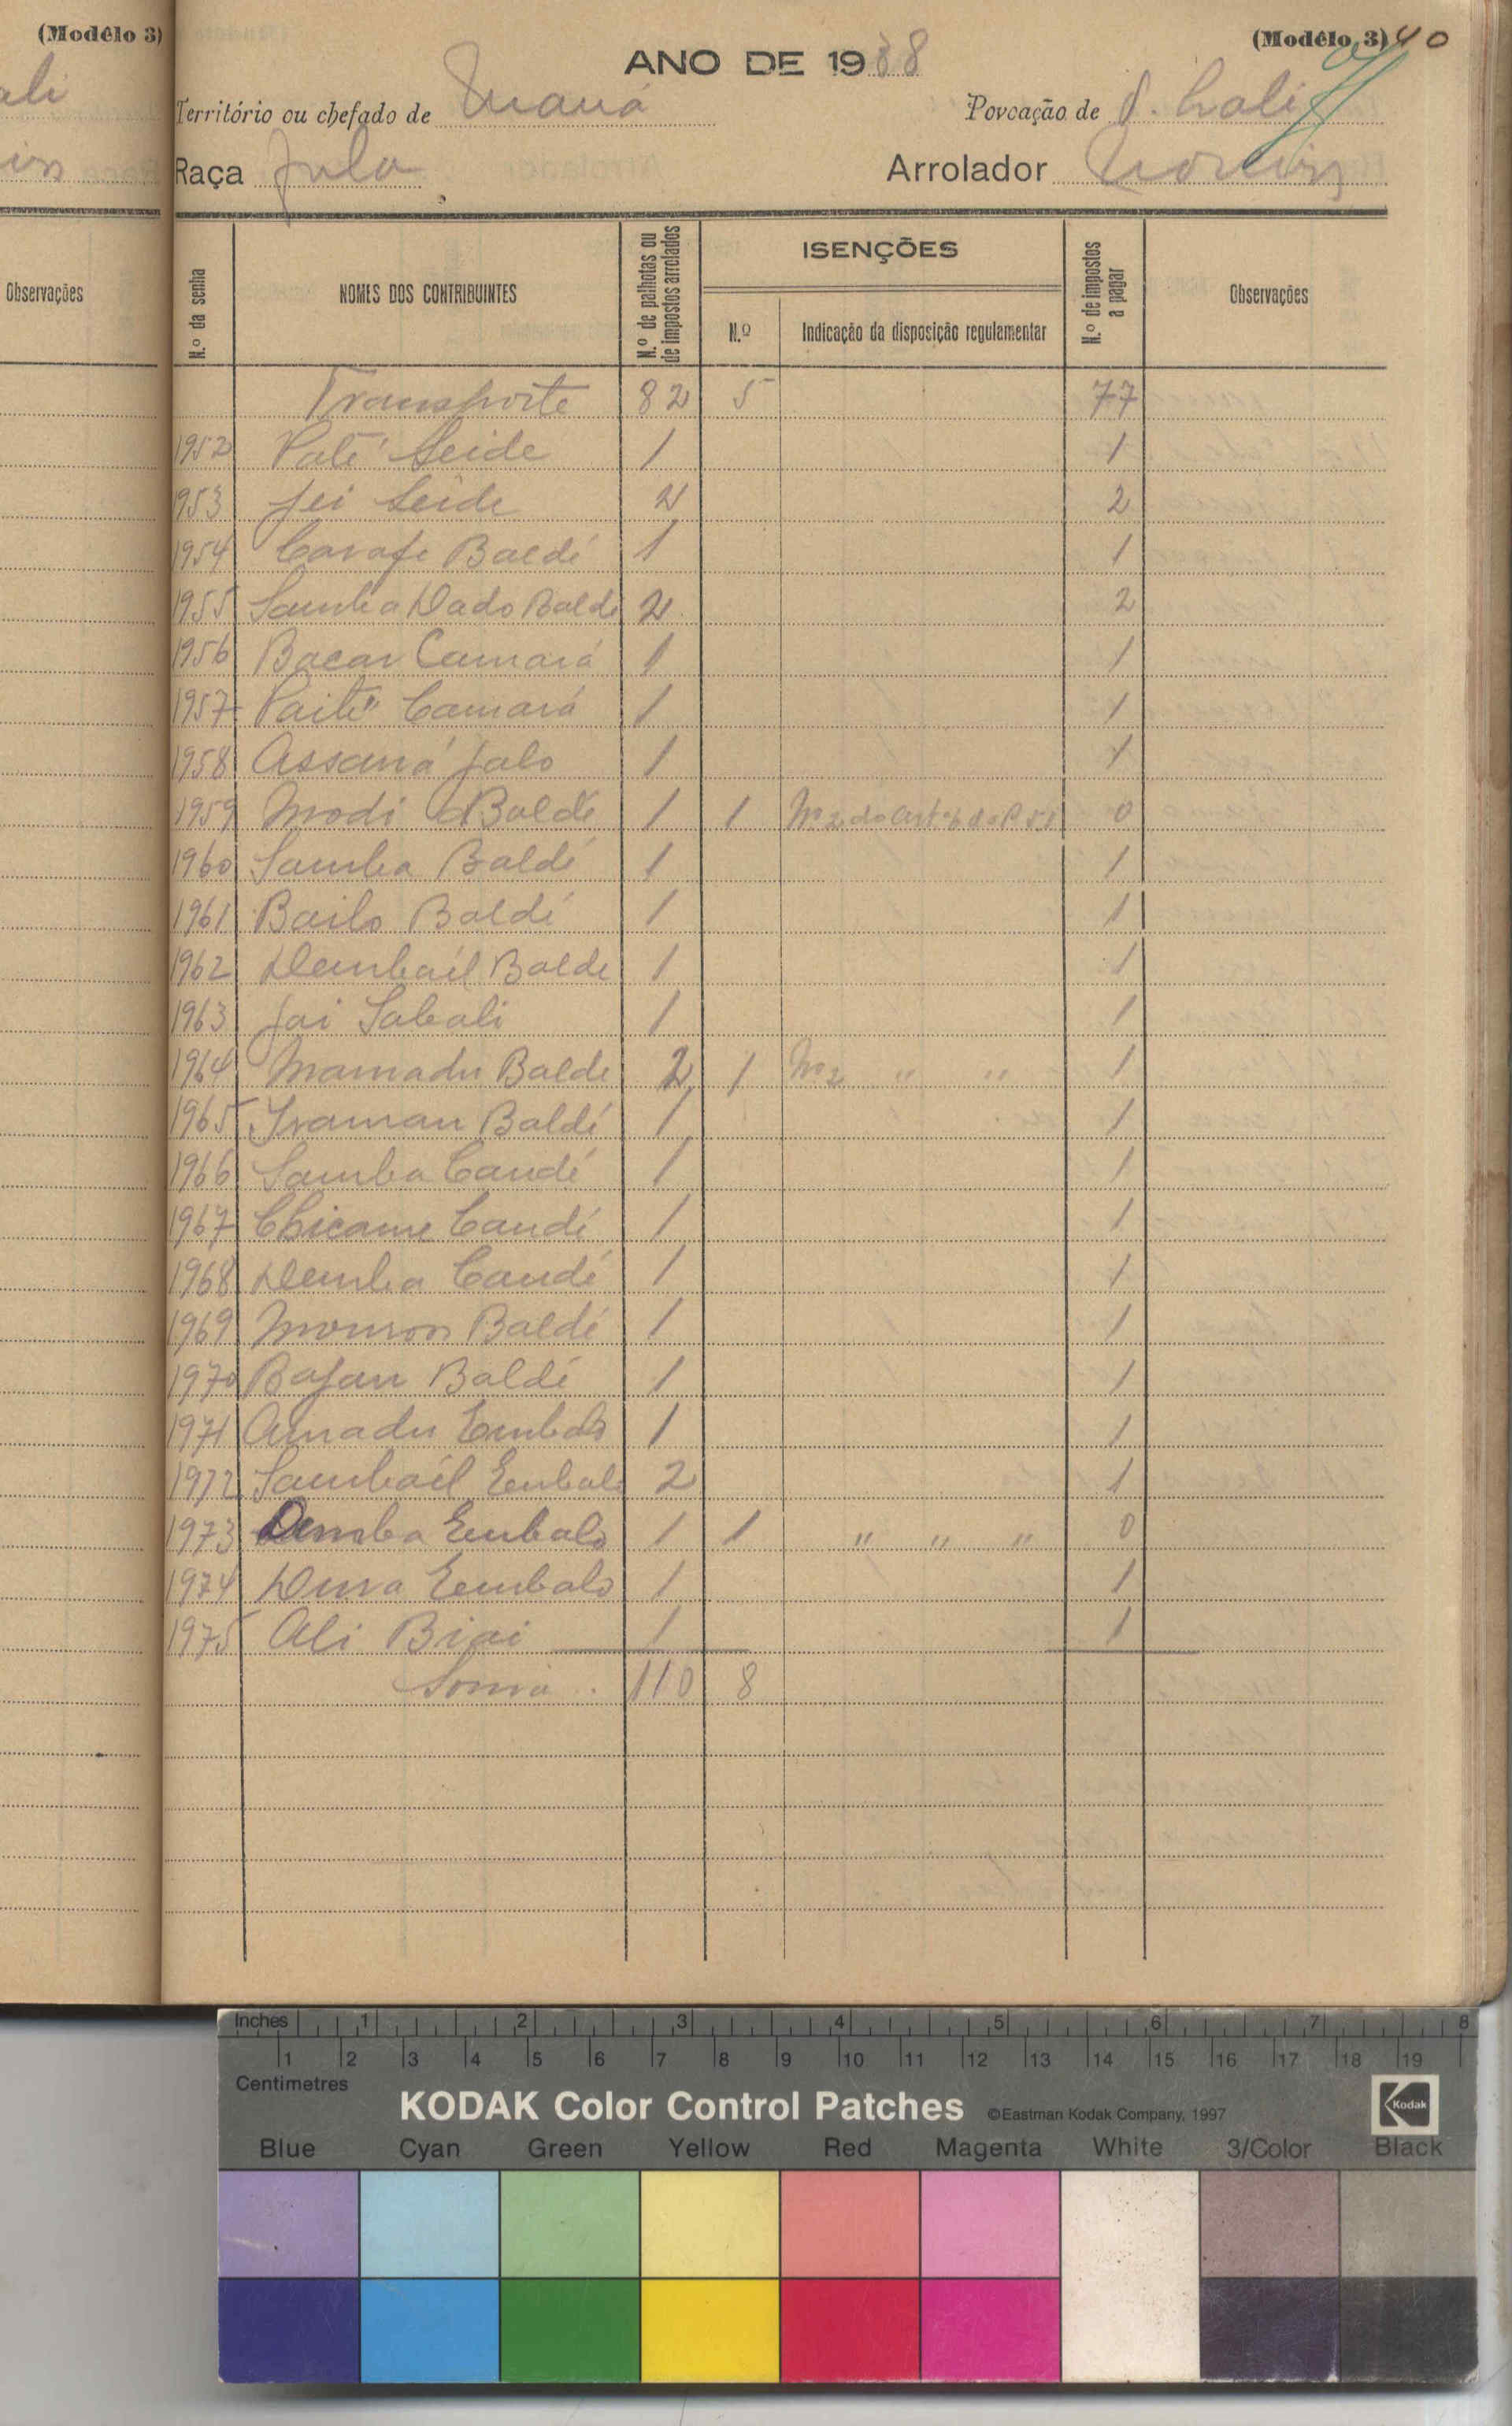 (Modêlo 3)
(Modêlo 3) 40
ANO DE 1938
ali
Território ou chefado de
Povoação de
Raça Fula
Arrolador
Observações
N.º da senha
NOMES DOS CONTRIBUINTES
N.º de palhotas ou de impostos arrolados
ISENÇÕES
N.º
Indicação da disposição regulamentar
N.º de impostos a pagar
Observações
Transporte 82 5 77
1952 Paté Seide 1 1
1953 Jei Seide 2 2
1954 Carafe Baldé 1 1
1955 Samba Dado Balde 2 2
1956 Bacar Camará 1 1
1957 Paité Camará 1 1
1958 Assaná Jalo 1 1
1959 Modi Baldé 1 1 Nº 2 do art. 6 0
1960 Samba Baldé 1 1
1961 Bailo Baldé 1 1
1962 Dembail Balde 1 1
1963 Jai Sabali 1 1
1964 Mamadu Balde 2 1 Nº 2 " " 1
1965 Iraman Baldé 1 1
1966 Samba Candé 1 1
1967 Chicame Candé 1 1
1968 Demba Candé 1 1
1969 Momron Baldé 1 1
1970 Bajan Baldé 1 1
1971 Amadu Embalo 1 1
1972 Sambail Embalo 2 1
1973 Demba Embalo 1 1 " " " 0
1974 Dura Embalo 1 1
1975 Ali Biai 1 1
Soma 110 8
Inches 1 2 3 4 5 6 7 8
1 2 3 4 5 6 7 8 9 10 11 12 13 14 15 16 17 18 19
Centimetres
KODAK Color Control Patches ©Eastman Kodak Company, 1997 Kodak
Blue Cyan Green Yellow Red Magenta White 3/Color Black